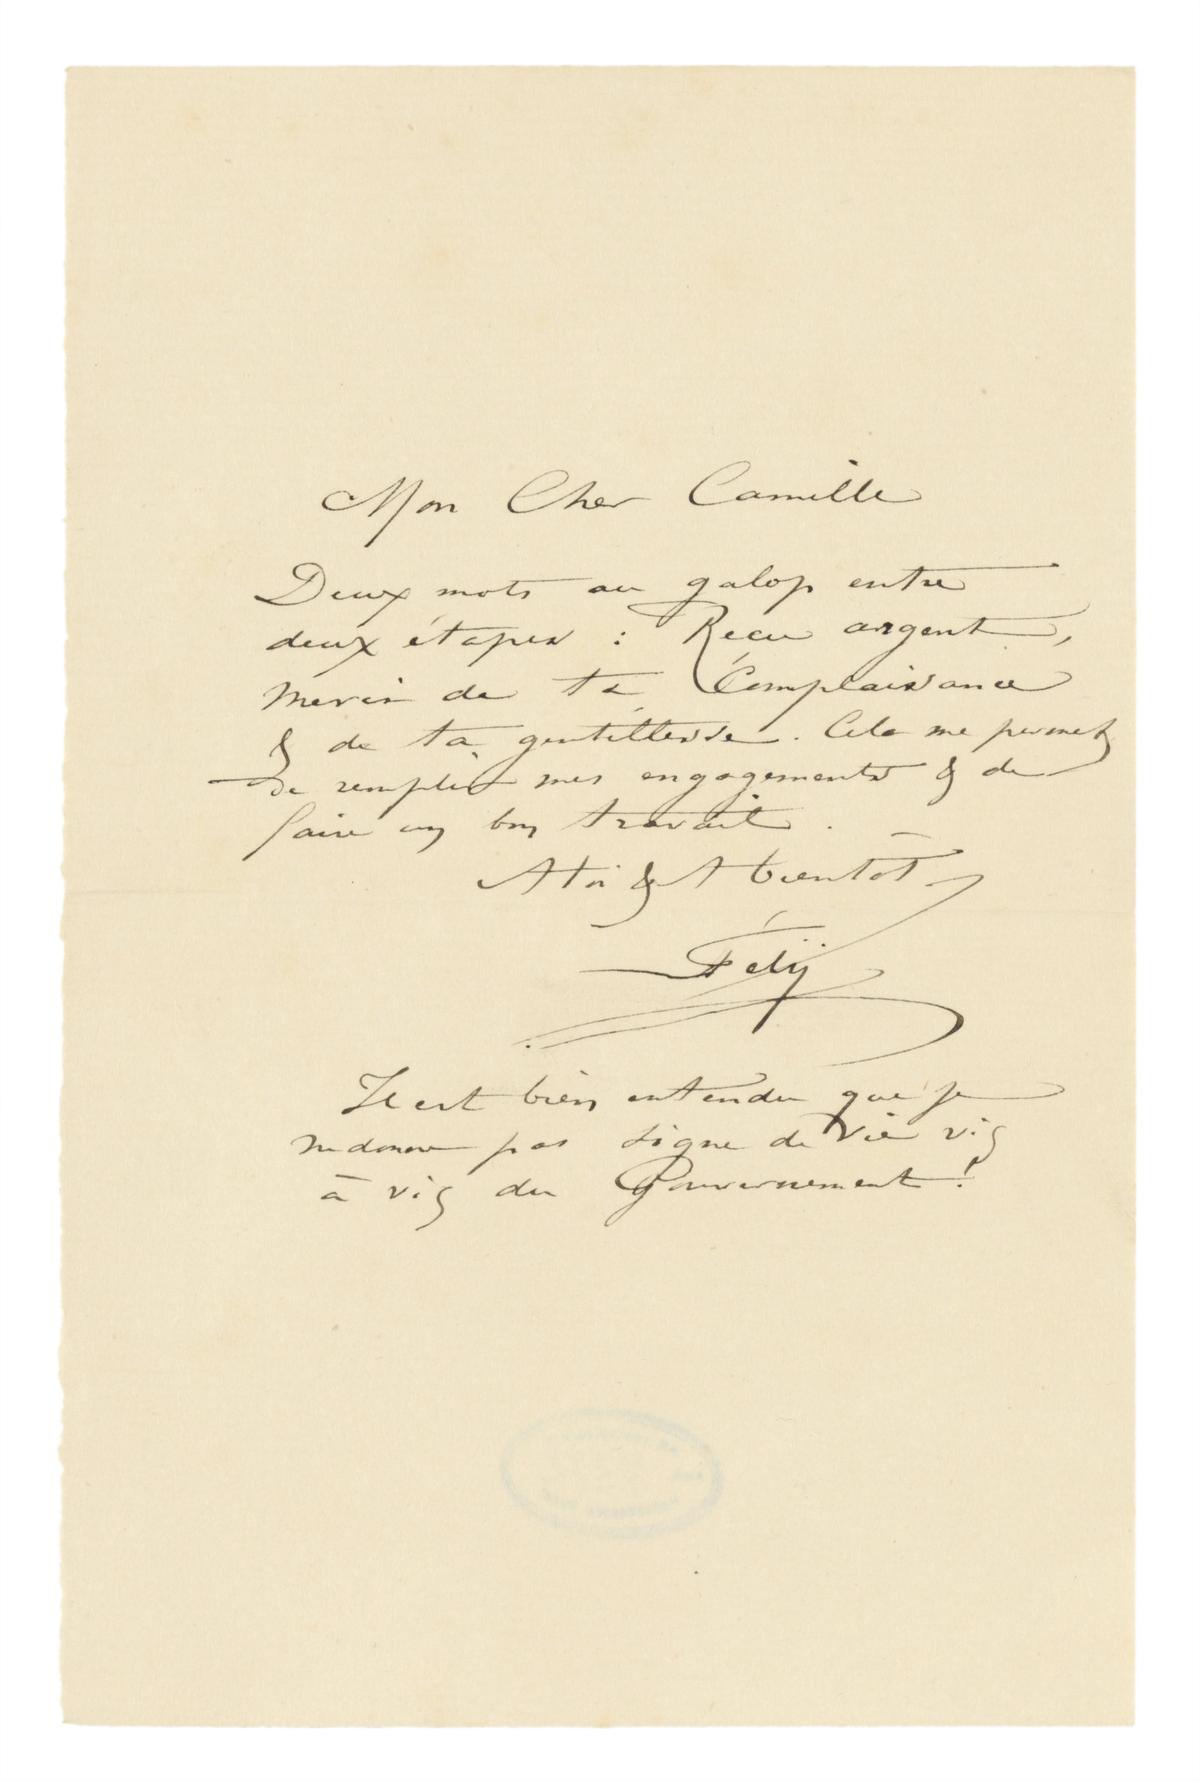 Mon Cher Camille
Deux mots au galop entre
deux étapes : Reçu argent,
Merci de ta Complaisance
& de ta gentillesse. Cela me permet
de remplir mes engagements & de
faire un bon travail.
A toi & A bientôt
Fély
Il est bien entendu que je
ne donne pas signe de vie vis
à vis du Gouvernement !